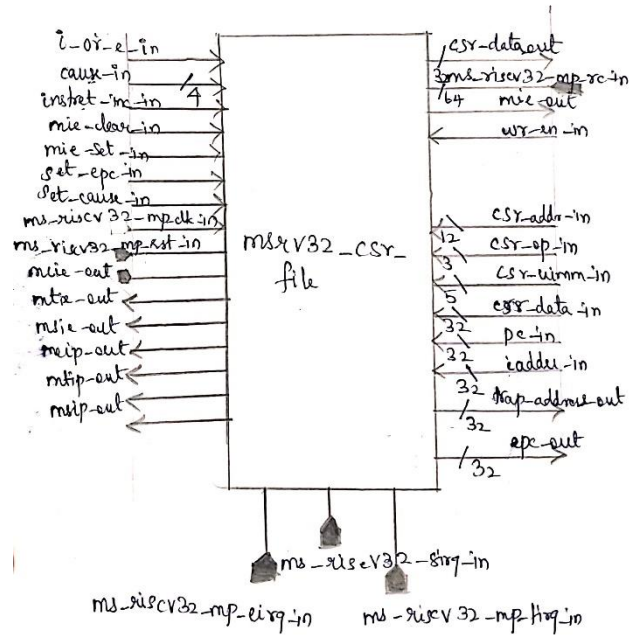 i-or-e-in
cause-in
4
instret-inc-in
mie-clear-in
mie-set-in
set-epc-in
set-cause-in
ms-riscv32-mp-clk-in
ms_riscv32-mp-rst-in
meie-out
mtie-out
msie-out
meip-out
mtip-out
msip-out
msrv32_csr_
file
csr-data.out
32
ms-riscv32-mp-rc-in
64
mie-out
wr-en-in
csr-addr-in
12
csr-op-in
3
csr-uimm-in
5
csr-data-in
32
pc-in
32
iaddr-in
32
trap-address-out
32
epc-out
32
ms-riscv32-sirq-in
ms-riscv32-mp-eirq-in
ms-riscv32-mp-tirq-in